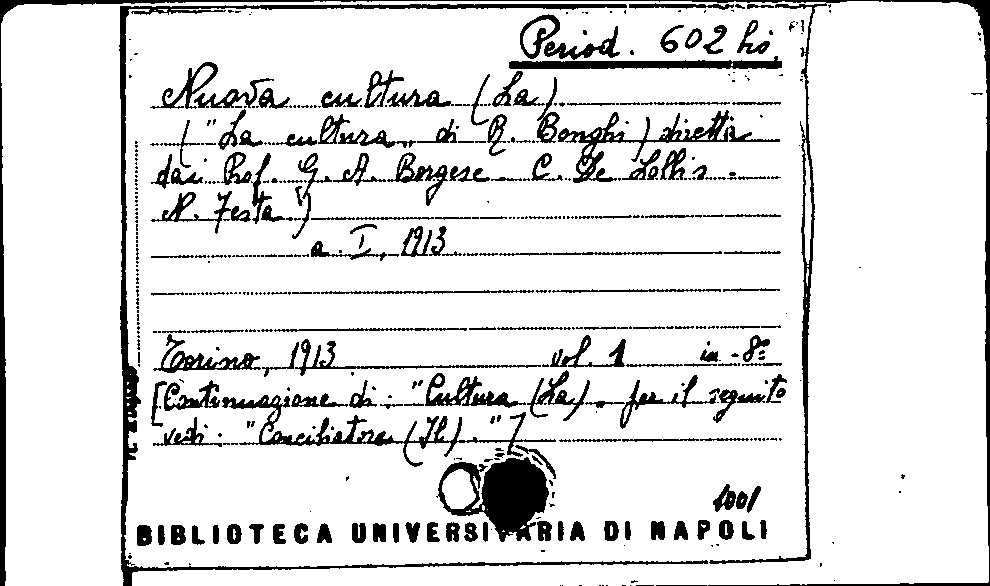 Period. 602 bis.
Nuova cultura (La)
("La cultura„ di R. Bonghi) diretta
dai Prof. G. A. Borgese - C. De Lollis -
N. Festa)
a. I, 1913
Torino, 1913. vol. 1 in-8º
[Continuazione di: "Cultura (La)„ per il seguito
vedi: "Conciliatore (Il)."]
1001
BIBLIOTECA UNIVERSITARIA DI NAPOLI